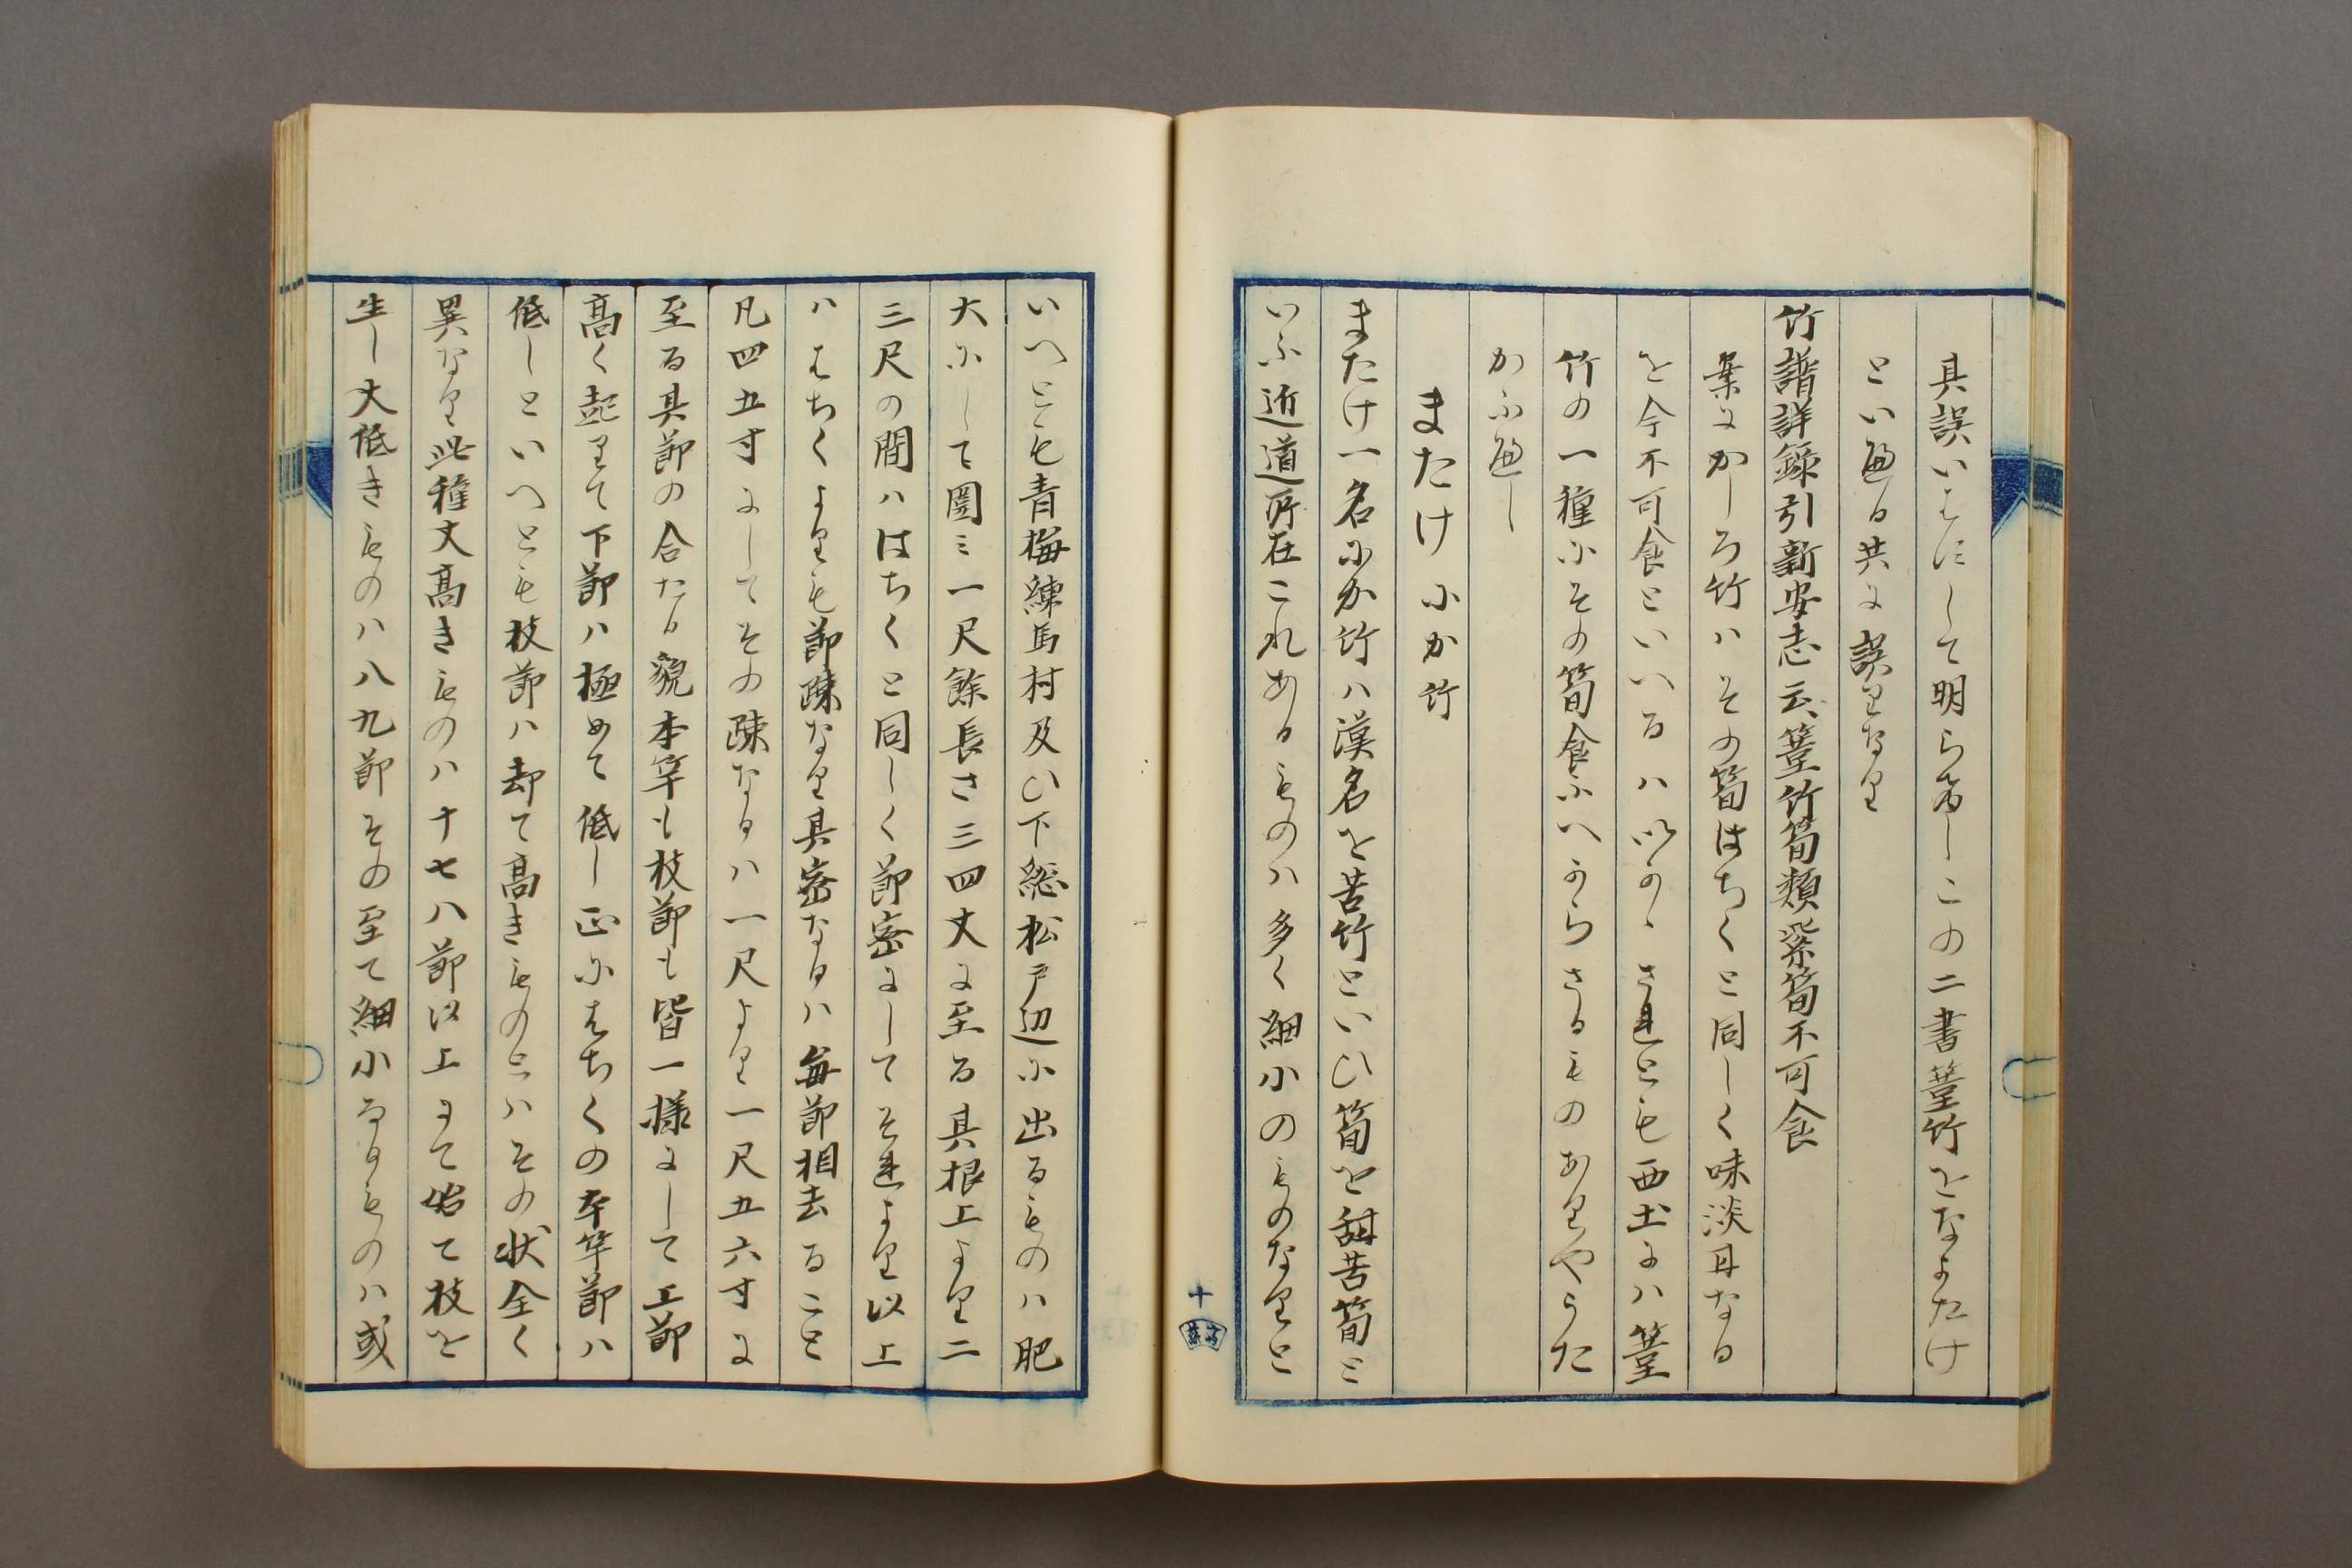 其誤いはすして明らかしこの二書䈽竹をなよたけ
といへる共に誤りなり
竹譜詳録引新安志云䈽竹筍類紫筍不可食
案にかしろ竹ハその筍はちくと同しく味淡甘なる
を今不可食といいるハいかゝされとも西土にハ䈽
竹の一種にその筍食ふへからさるものありやうた
かふへし
またけ にか竹
またけ一名にか竹ハ漢名を苦竹といひ筍を甜苦筍と
いふ近道所在これあるものハ多く細小のものなりと
いへとも青梅練馬村及ひ下総松戸辺に出るものハ肥
大にして圍ミ一尺餘長さ三四丈に至る其根上より二
三尺の間ハはちくと同しく節密にしてそれより以上
ハはちくよりも節疎なり其密なるハ毎節相去ること
凡四五寸にしてその疎なるハ一尺より一尺五六寸に
至る其節の合たる貌本竿も枝節も皆一様にして上節
高く起りて下節ハ極めて低し正にはちくの本竿節ハ
低しといへとも枝節ハ却て高きものとハその状全く
異なり此種丈高きものハ十七八節以上にて始て枝を
生し丈低きものハ八九節その至て細小なるものハ或
十